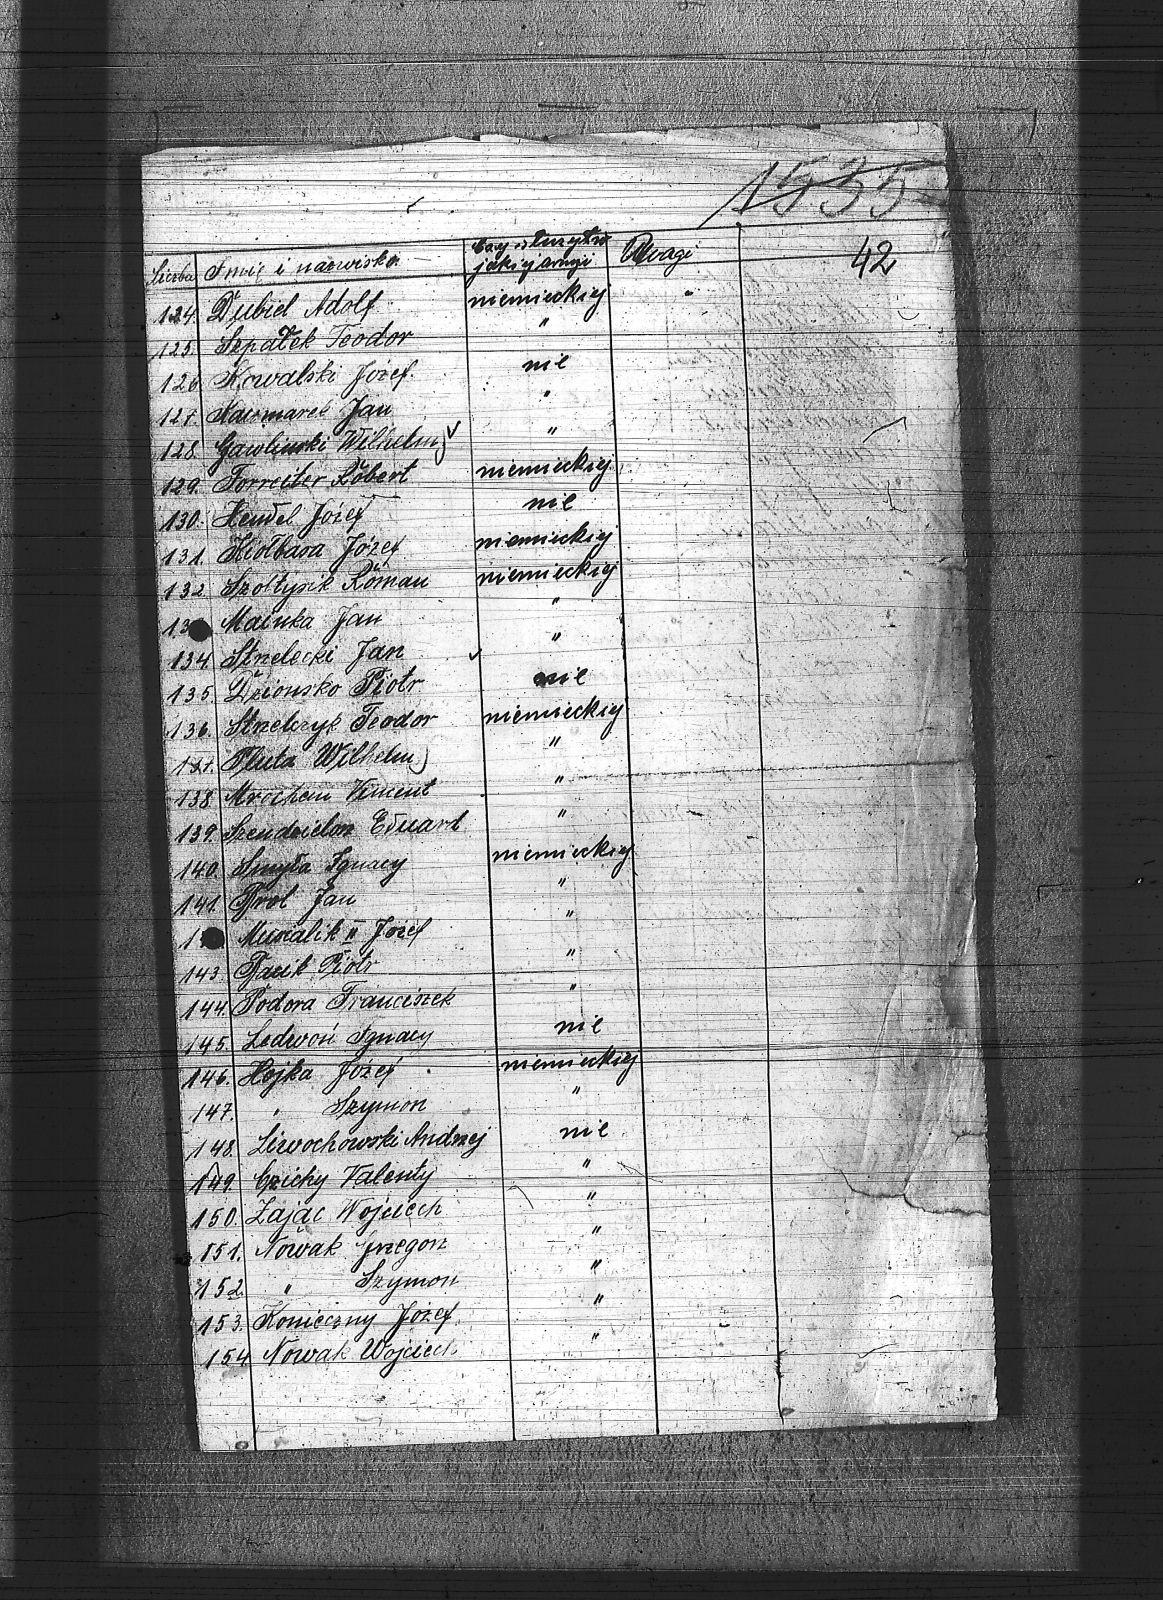 1535
42
Liczba Imię i nazwisko Czy służył w jakiej armji Uwagi
124. Dubiel Adolf niemieckiej "
125. Szpałek Teodor "
126. Kowalski Józef. nie
127. Kaczmarek Jan "
128. Gawliński Wilhelm "
129. Forreiter Robert niemieckiej
130. Hendel Józef nie
131. Kiołbasa Józef niemieckiej
132. Szołtysik Roman niemieckiej
13 Mainka Jan "
134. Strzelecki Jan "
135. Dzionsko Piotr nie
136. Strzelczyk Teodor niemieckiej
137. Pluta Wilhelm "
138 Mrochen Vincent "
139. Szendzielorz Eduart "
140. Smyła Ignacy niemieckiej
141. Jan "
1 Musialik II Józef "
143. Piotr "
144. Podora Franciszek "
145. Ledwoń Ignacy nie
146. Hojka Józef niemieckiej
147. " Szymon "
148. Liwochowski Andrzej nie
149. Czichy Valenty "
150. Zając Wojciech "
151. Nowak Grzegorz "
152. " Szymon "
153. Konieczny Józef "
154 Nowak Wojciech "